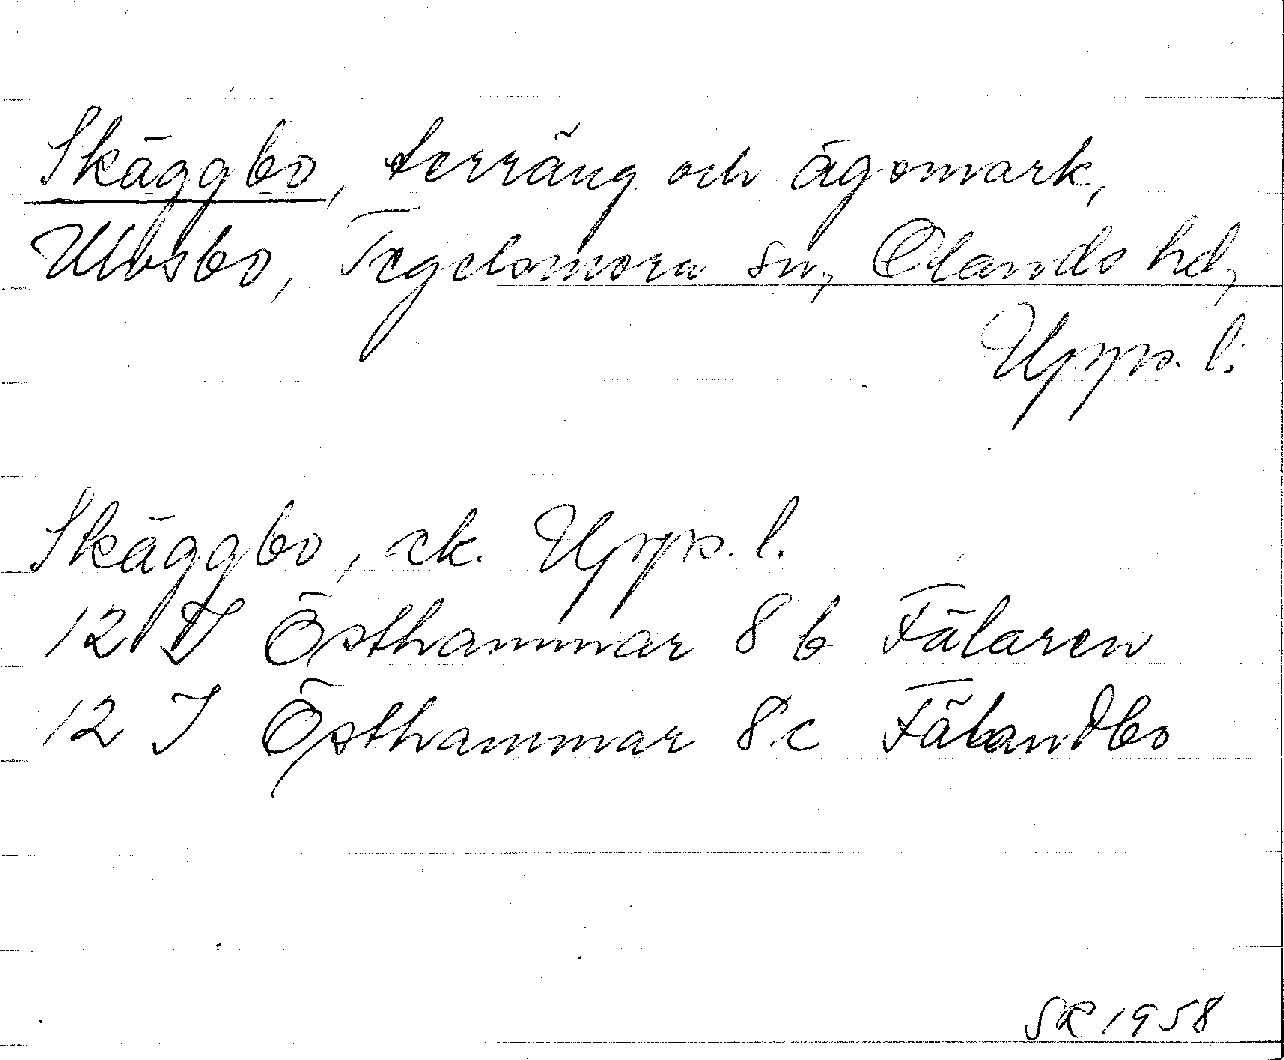 Skäggbo, terräng och ägomark,
Ulvsbo, Tegelsmora sn, Olands hd,
Upps. l.
Skäggbo, ek. Upps. l.
12 I Östhammar 8 b Fälaren
12 I Östhammar 8 c Fälandbo
SR 1958